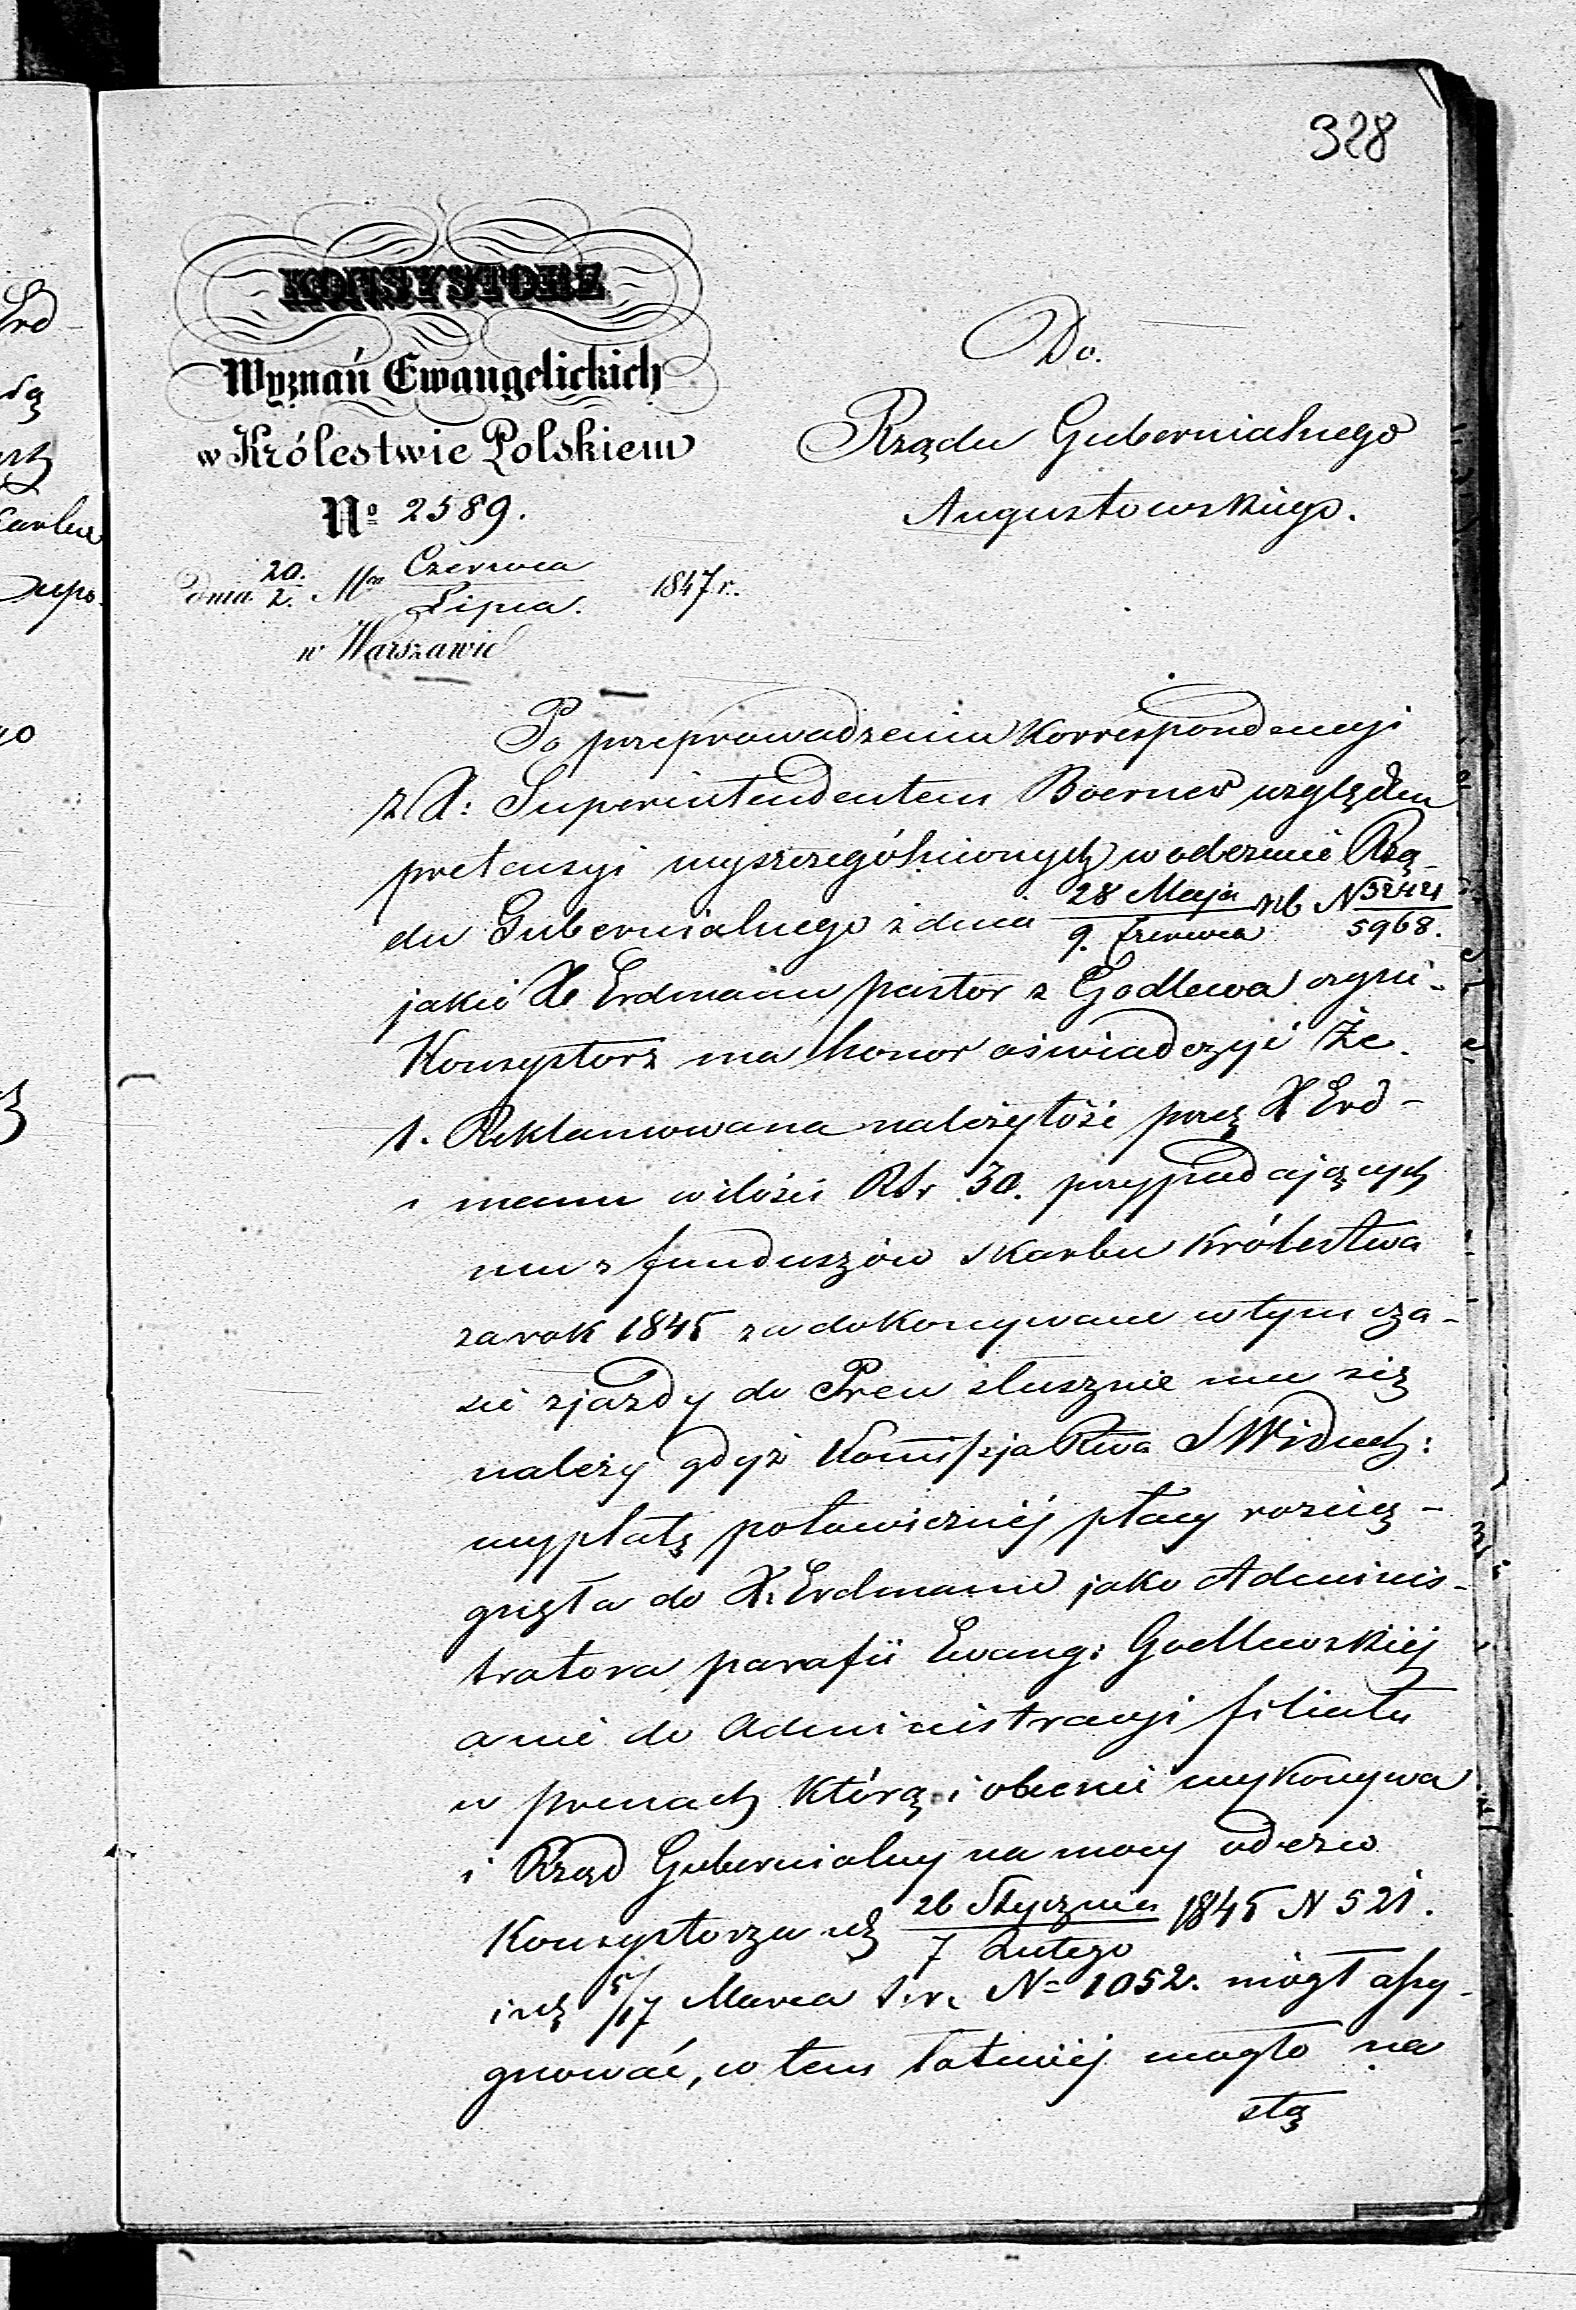 328
KONSYSTORZ
Wyznań Ewangelickich
w Królestwie Polskiem
No 2589.
dnia 20./2. Mca Czerwca/Lipca. 1847 r.
w Warszawie
Do.
Rządu Gubernialnego
Augustowskiego.
Po przeprowadzeniu Korrespondencyi
z X: Superintendentem Boerner względem
pretensyi wyszczególnionych w odezwie Rzą-
du Gubernialnego z dnia 28 Maja/9. Czerwca N 52421/5968.
jakie X Erdmann pastor z Godlewa czyni-
Konsystorz ma honor oświadczyć Że.
1. Reklamowana należytość przez X Erd-
mann w ilości RSr 30. przypadających
mu z funduszów skarbu Królestwa
za rok 1845 za dokonywane w tym cza-
sie zjazdy do Pren słusznie mu się
należy gdyż Kommissja Rwa SWiDuch:
wypłatę połowicznéj płacy rozcią-
gnęła do X. Erdmann jako Adminis-
tratora parafii Ewang: Godlewskiéj
a nie do Administracyi filiału
w prenach którą i obecnie wykonywa
i Rząd Gubernialny na mocy odezw
Konsystorza z 26 Stycznia/7 Lutego 1845 N 521.
i z 5/17 Marca t.r. No 1052. mógł assy-
gnować, w tem łatwiéj mogło na
stą